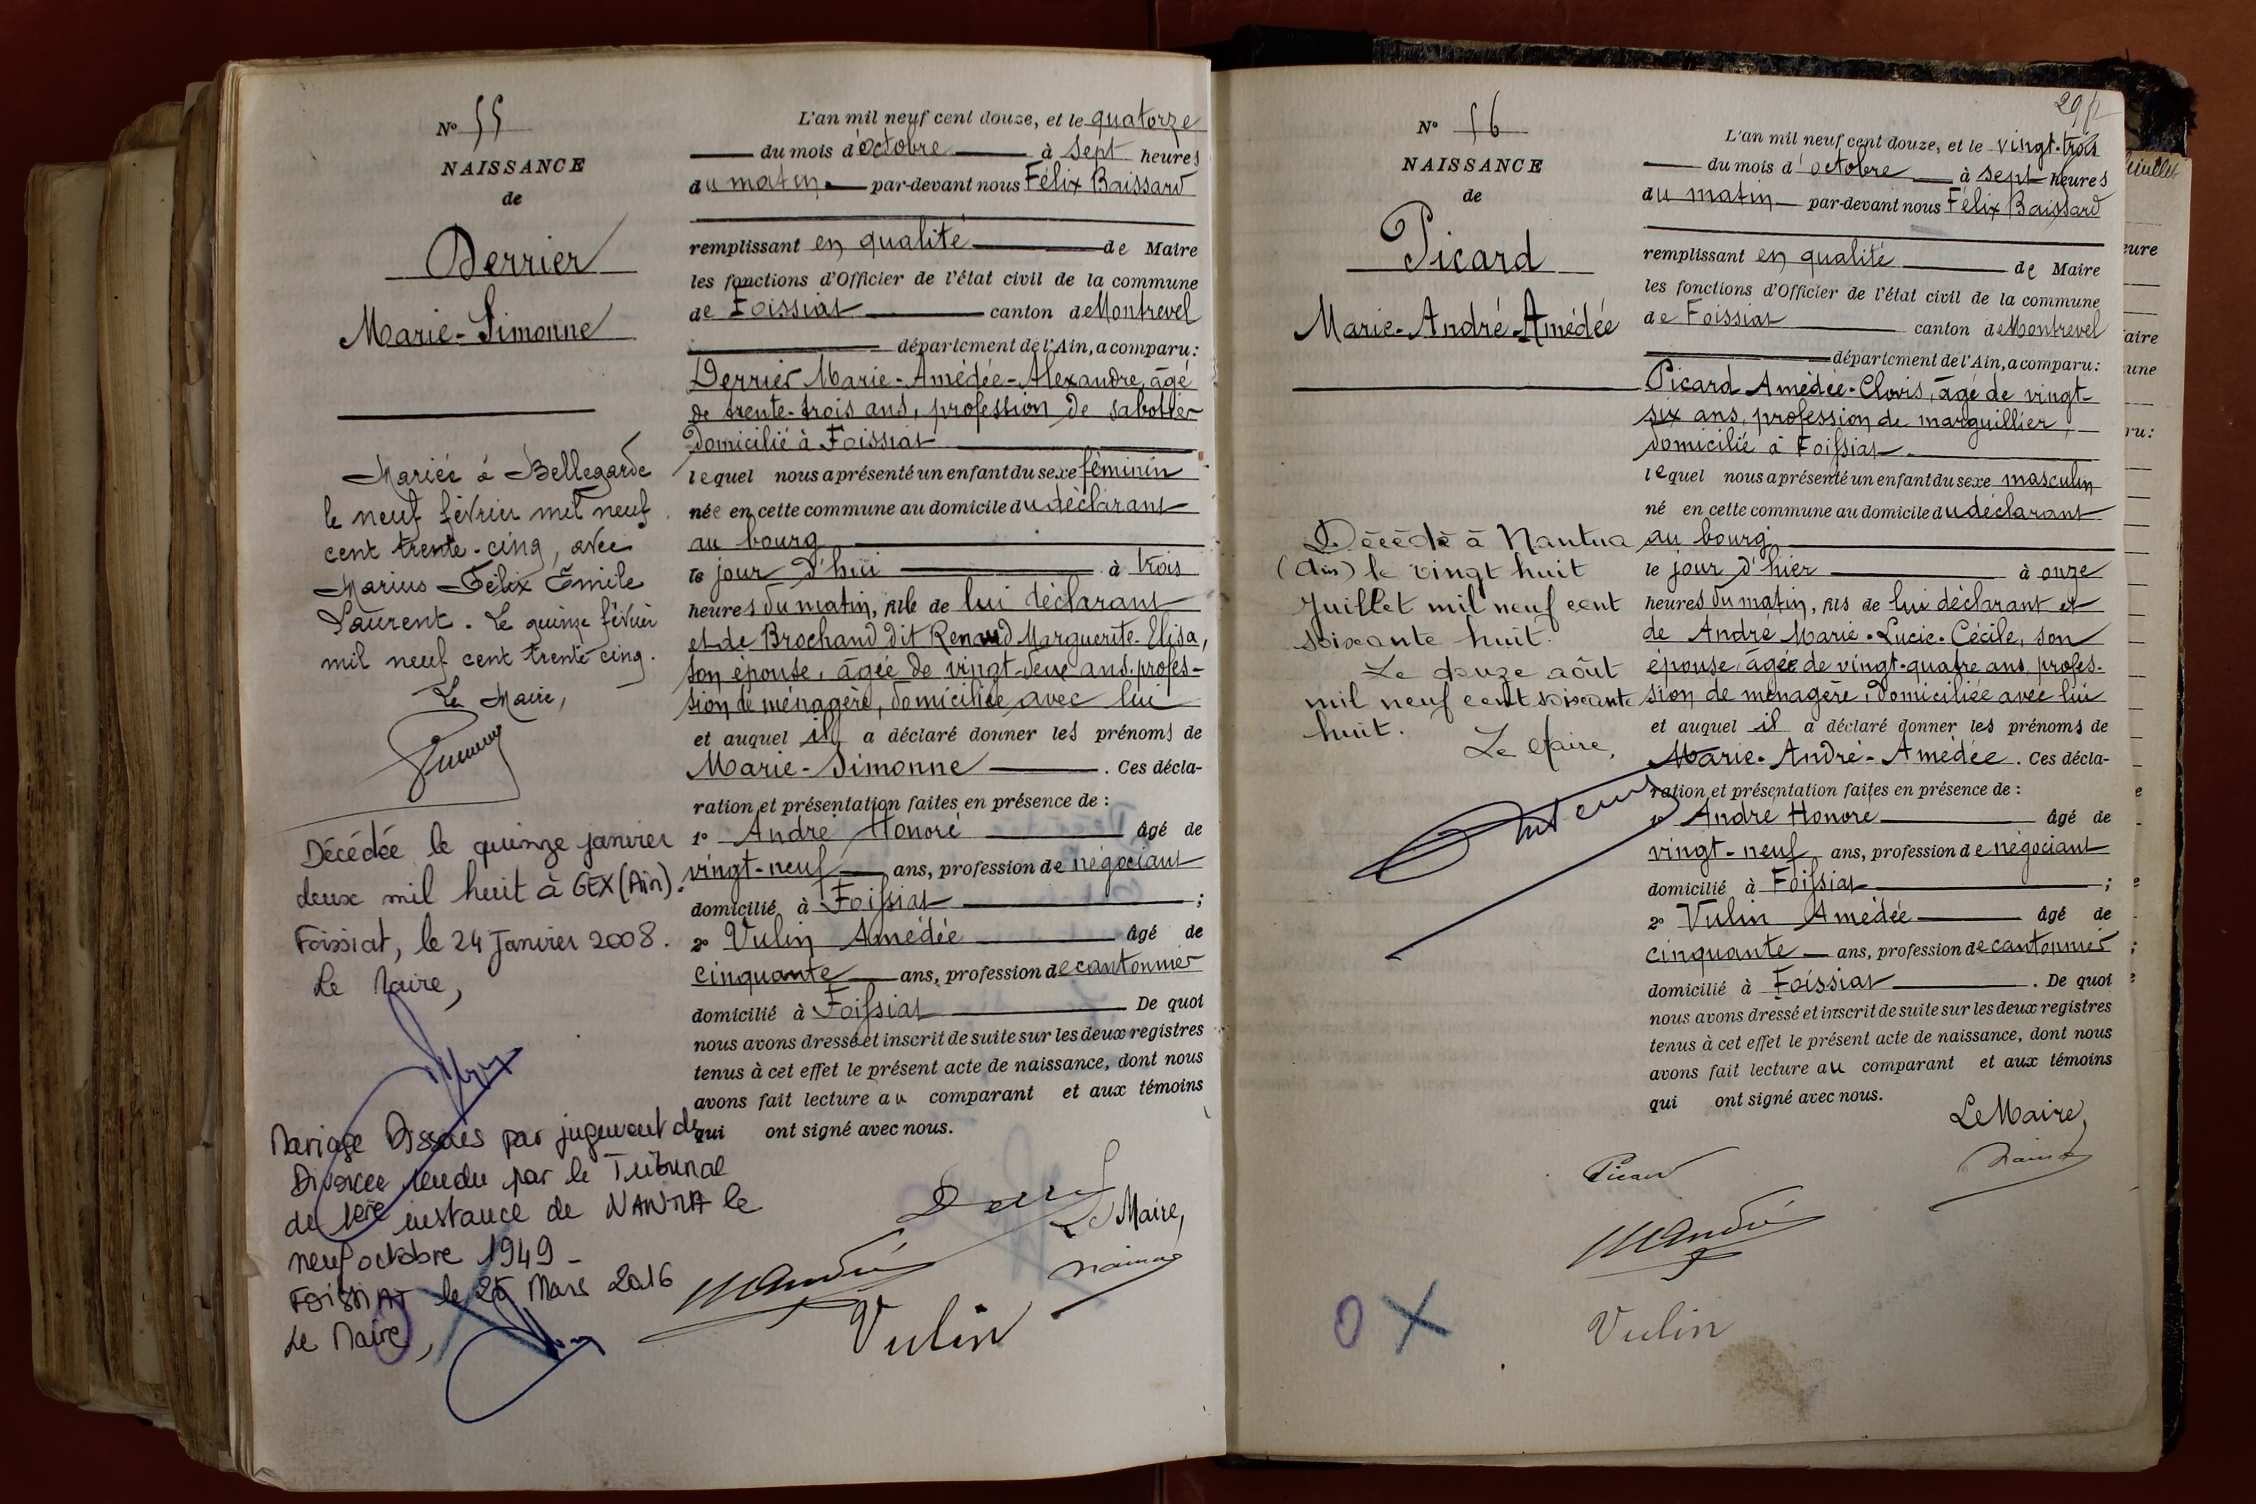 N° 55
NAISSANCE
de
Derrier
Marie-Simonne
Mariée à Bellegarde
le neuf février mil neuf
cent trente-cinq, avec
Marius Félix Émile
Laurent. Le quinze février
mil neuf cent trente cinq.
Le Maire,
Décédée le quinze janvier
deux mil huit à GEX (Ain).
Foissiat, le 24 Janvier 2008.
Le Maire,
Mariage Dissous par jugement de
Divorce rendu par le Tribunal
de 1ère instance de NANTUA le
neuf octobre 1949 -
FOISSIAT le 25 Mars 2016
Le Maire,
L'an mil neuf cent douze, et le quatorze
du mois d'octobre à sept heures
du matin par-devant nous Félix Baissard
remplissant en qualité de Maire
les fonctions d'Officier de l'état civil de la commune
de Foissiat canton de Montrevel
département de l'Ain, a comparu:
Derrier Marie-Amédée-Alexandre, âgé
de trente-trois ans, profession de sabotier
domicilié à Foissiat
lequel nous a présenté un enfant du sexe féminin
née en cette commune au domicile du déclarant
au bourg
le jour d'hui à trois
heures du matin, fille de lui déclarant
et de Brochand dit Renaud Marguerite-Elisa,
son épouse, âgée de vingt-deux ans, profes-
sion de ménagère, domiciliée avec lui
et auquel il a déclaré donner les prénoms de
Marie-Simonne. Ces décla-
ration et présentation faites en présence de :
1° André Honoré âgé de
vingt-neuf ans, profession de négociant
domicilié à Foissiat ;
2° Vulin Amédée âgé de
cinquante ans, profession de cantonnier
domicilié à Foissiat De quoi
nous avons dressé et inscrit de suite sur les deux registres
tenus à cet effet le présent acte de naissance, dont nous
avons fait lecture au comparant et aux témoins
qui ont signé avec nous.
Le Maire,
HAndré
Vulin
29/2
N° 56
NAISSANCE
de
Picard
Marie-André-Amédée
Décédé à Nantua
(Ain) le vingt huit
Juillet mil neuf cent
soixante huit.
Le douze août
mil neuf cent soixante
huit.
Le Maire,
L'an mil neuf cent douze, et le vingt-trois
du mois d'octobre à sept heures
du matin par-devant nous Félix Baissard
remplissant en qualité de Maire
les fonctions d'Officier de l'état civil de la commune
de Foissiat canton de Montrevel
département de l'Ain, a comparu:
Picard Amédée-Clovis, âgé de vingt-
six ans, profession de marguillier,
domicilié à Foissiat
lequel nous a présenté un enfant du sexe masculin
né en cette commune au domicile du déclarant
au bourg
le jour d'hier à onze
heures du matin, fils de lui déclarant et
de André Marie-Lucie-Cécile, son
épouse, âgée de vingt-quatre ans, profes-
sion de ménagère, domiciliée avec lui
et auquel il a déclaré donner les prénoms de
Marie-André-Amédée. Ces décla-
ration et présentation faites en présence de :
1° André Honoré âgé de
vingt-neuf ans, profession de négociant
domicilié à Foissiat ;
2° Vulin Amédée âgé de
cinquante ans, profession de cantonnier
domicilié à Foissiat. De quoi
nous avons dressé et inscrit de suite sur les deux registres
tenus à cet effet le présent acte de naissance, dont nous
avons fait lecture au comparant et aux témoins
qui ont signé avec nous.
Le Maire,
Picard
HAndré
Vulin
O X